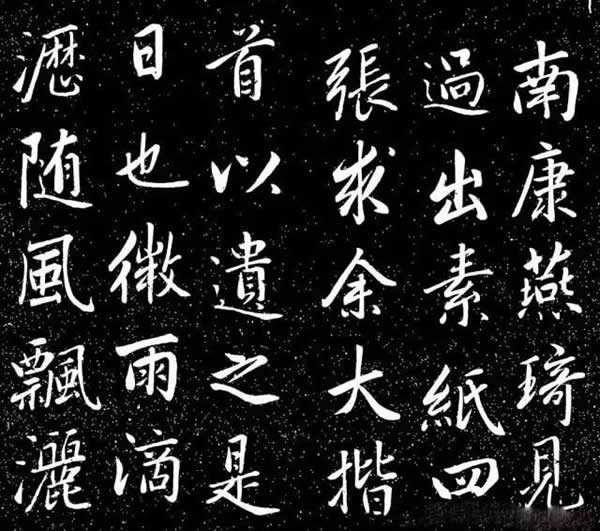 南康燕琦見
過出素紙四
張求余大揩
首以遺之是
日也微雨滴
瀝随風飄灑